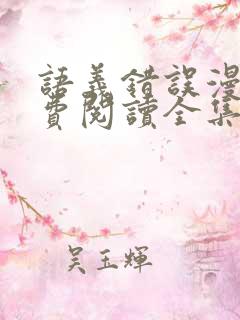 語義錯誤漫
費閱讀全集
吴玉輝